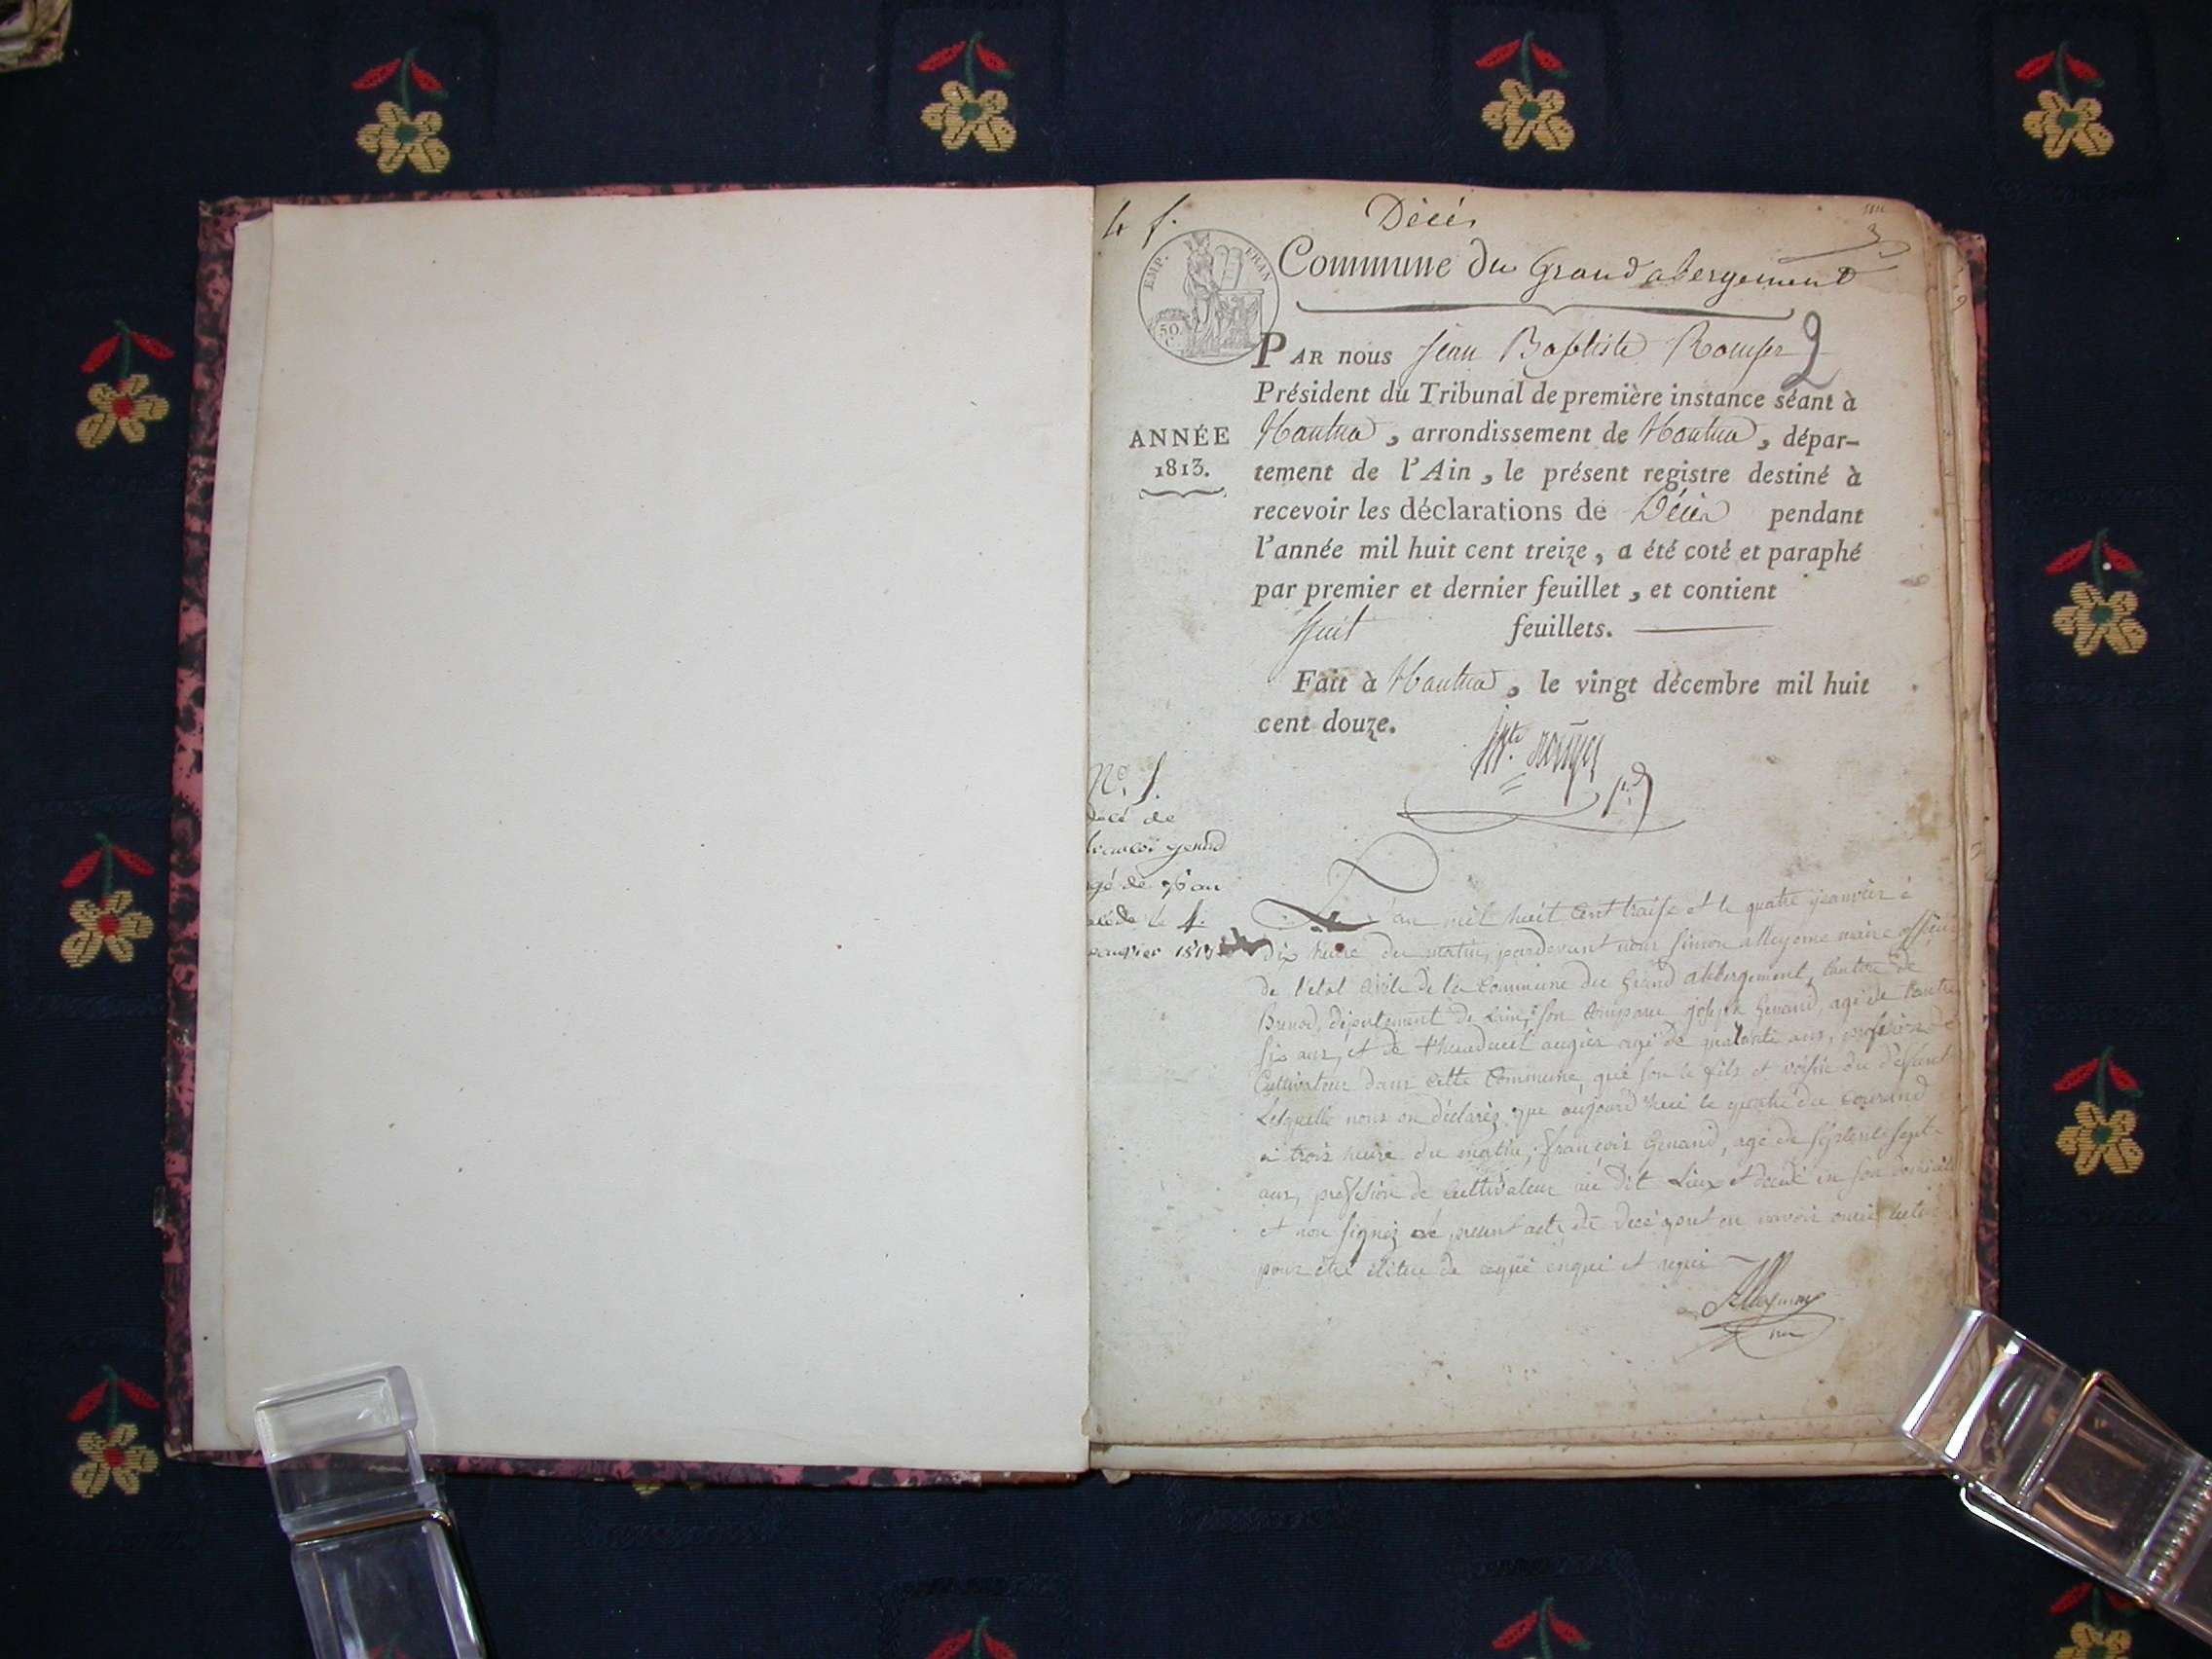 4 f.
Décés
3
Commune du Grand abergement
EMP. FRAN
50.
C.
PAR nous Jean Baptiste Rouyer
2
Président du Tribunal de première instance séant à
ANNÉE
1813.
Nantua, arrondissement de Nantua, dépar-
tement de l'Ain, le présent registre destiné à
recevoir les déclarations de Décès pendant
l'année mil huit cent treize, a été coté et paraphé
par premier et dernier feuillet, et contient
huit feuillets.
Fait à Nantua, le vingt décembre mil huit
cent douze.
N° 1.
décé de
gé de 76 an
le 4.
janvier 1813
L'an mil huit Cent traise et le quatre jeanvier à
dix heure du matin, pardevant nous Simon alleyome maire officier
de l'etat Civile de la Commune du Grand abbergement, Canton de
Brenod, département de Lain, son Comparu joseph Genand, agé de trantre
six ans, et de augier agé de quarante ans, profession de
Cultivateur dans cette Commune, que son le fils et voisin du défunt
Lesquelle nous on déclarés que aujourd'huei le quatre du Courand
à trois heure du matin, françois Genand, agé de septente sept
ans, profession de Cultivateur au Dit Lieux et decedé en son domicile
et nou signez le presant acte de decé
pour être